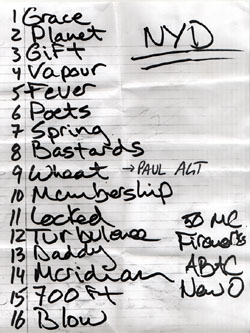 NYD
1 Grace
2 Planet
3 Gift
4 Vapour
5 Fever
6 Poets
7 Spring
8 Bastards
9 Wheat → PAUL AGT
10 Membership
11 Locked
12 Turbulence
13 Daddy
14 Meridian
15 700 ft
16 Blow
50 MC
Fireflies
AB+C
New O